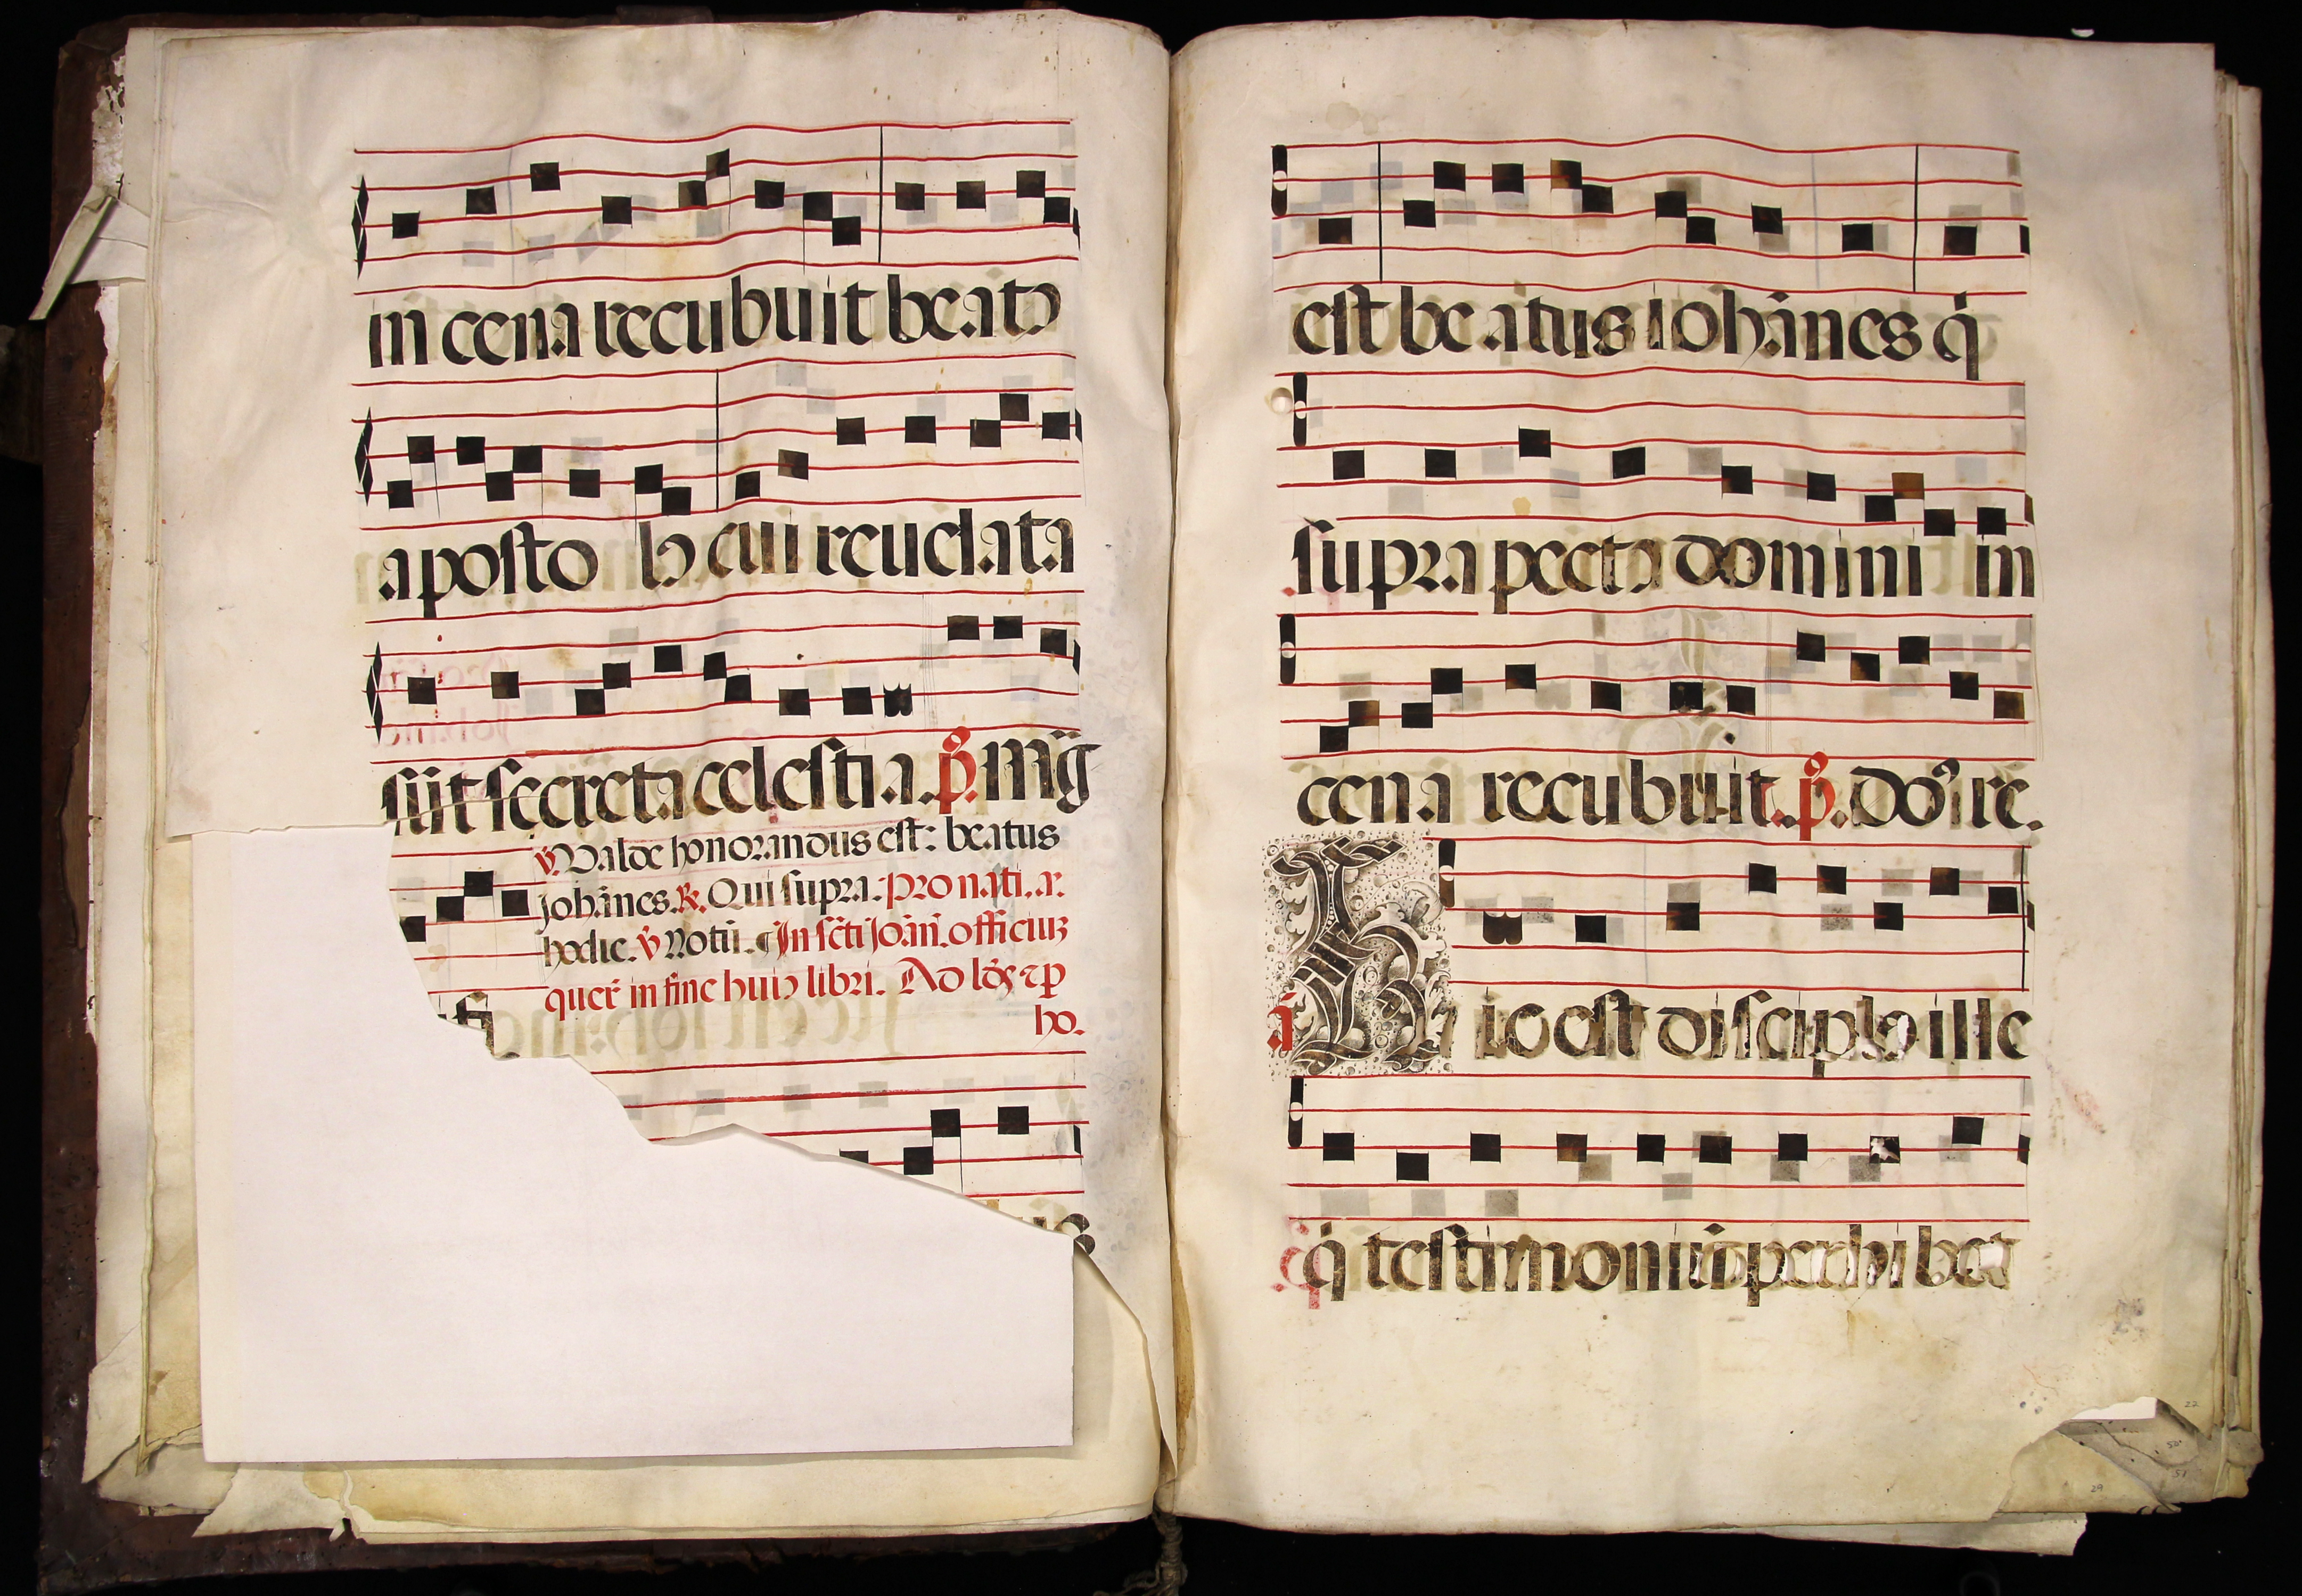 in cena recubuit beato
aposto lo cui reuelata
sūt secreta celestia. p̄. mīg
℣. Valde honorandus est: beatus
johānes. ℟. Qui supra: pro nati. ar.
hodie. ℣ Notū. ¶ In sc̄ti Joāñ. officiuʒ
quer̄ in fine huiꝰ libri. Ad lōs ⁊ ꝑ
ho.
est beatus iohānes q̇
supra pectꝰ domini in
cena recubuit. p̄. doꝰ re.
ā Hic est disciplꝰ ille
q̇ testimoniū perhibet